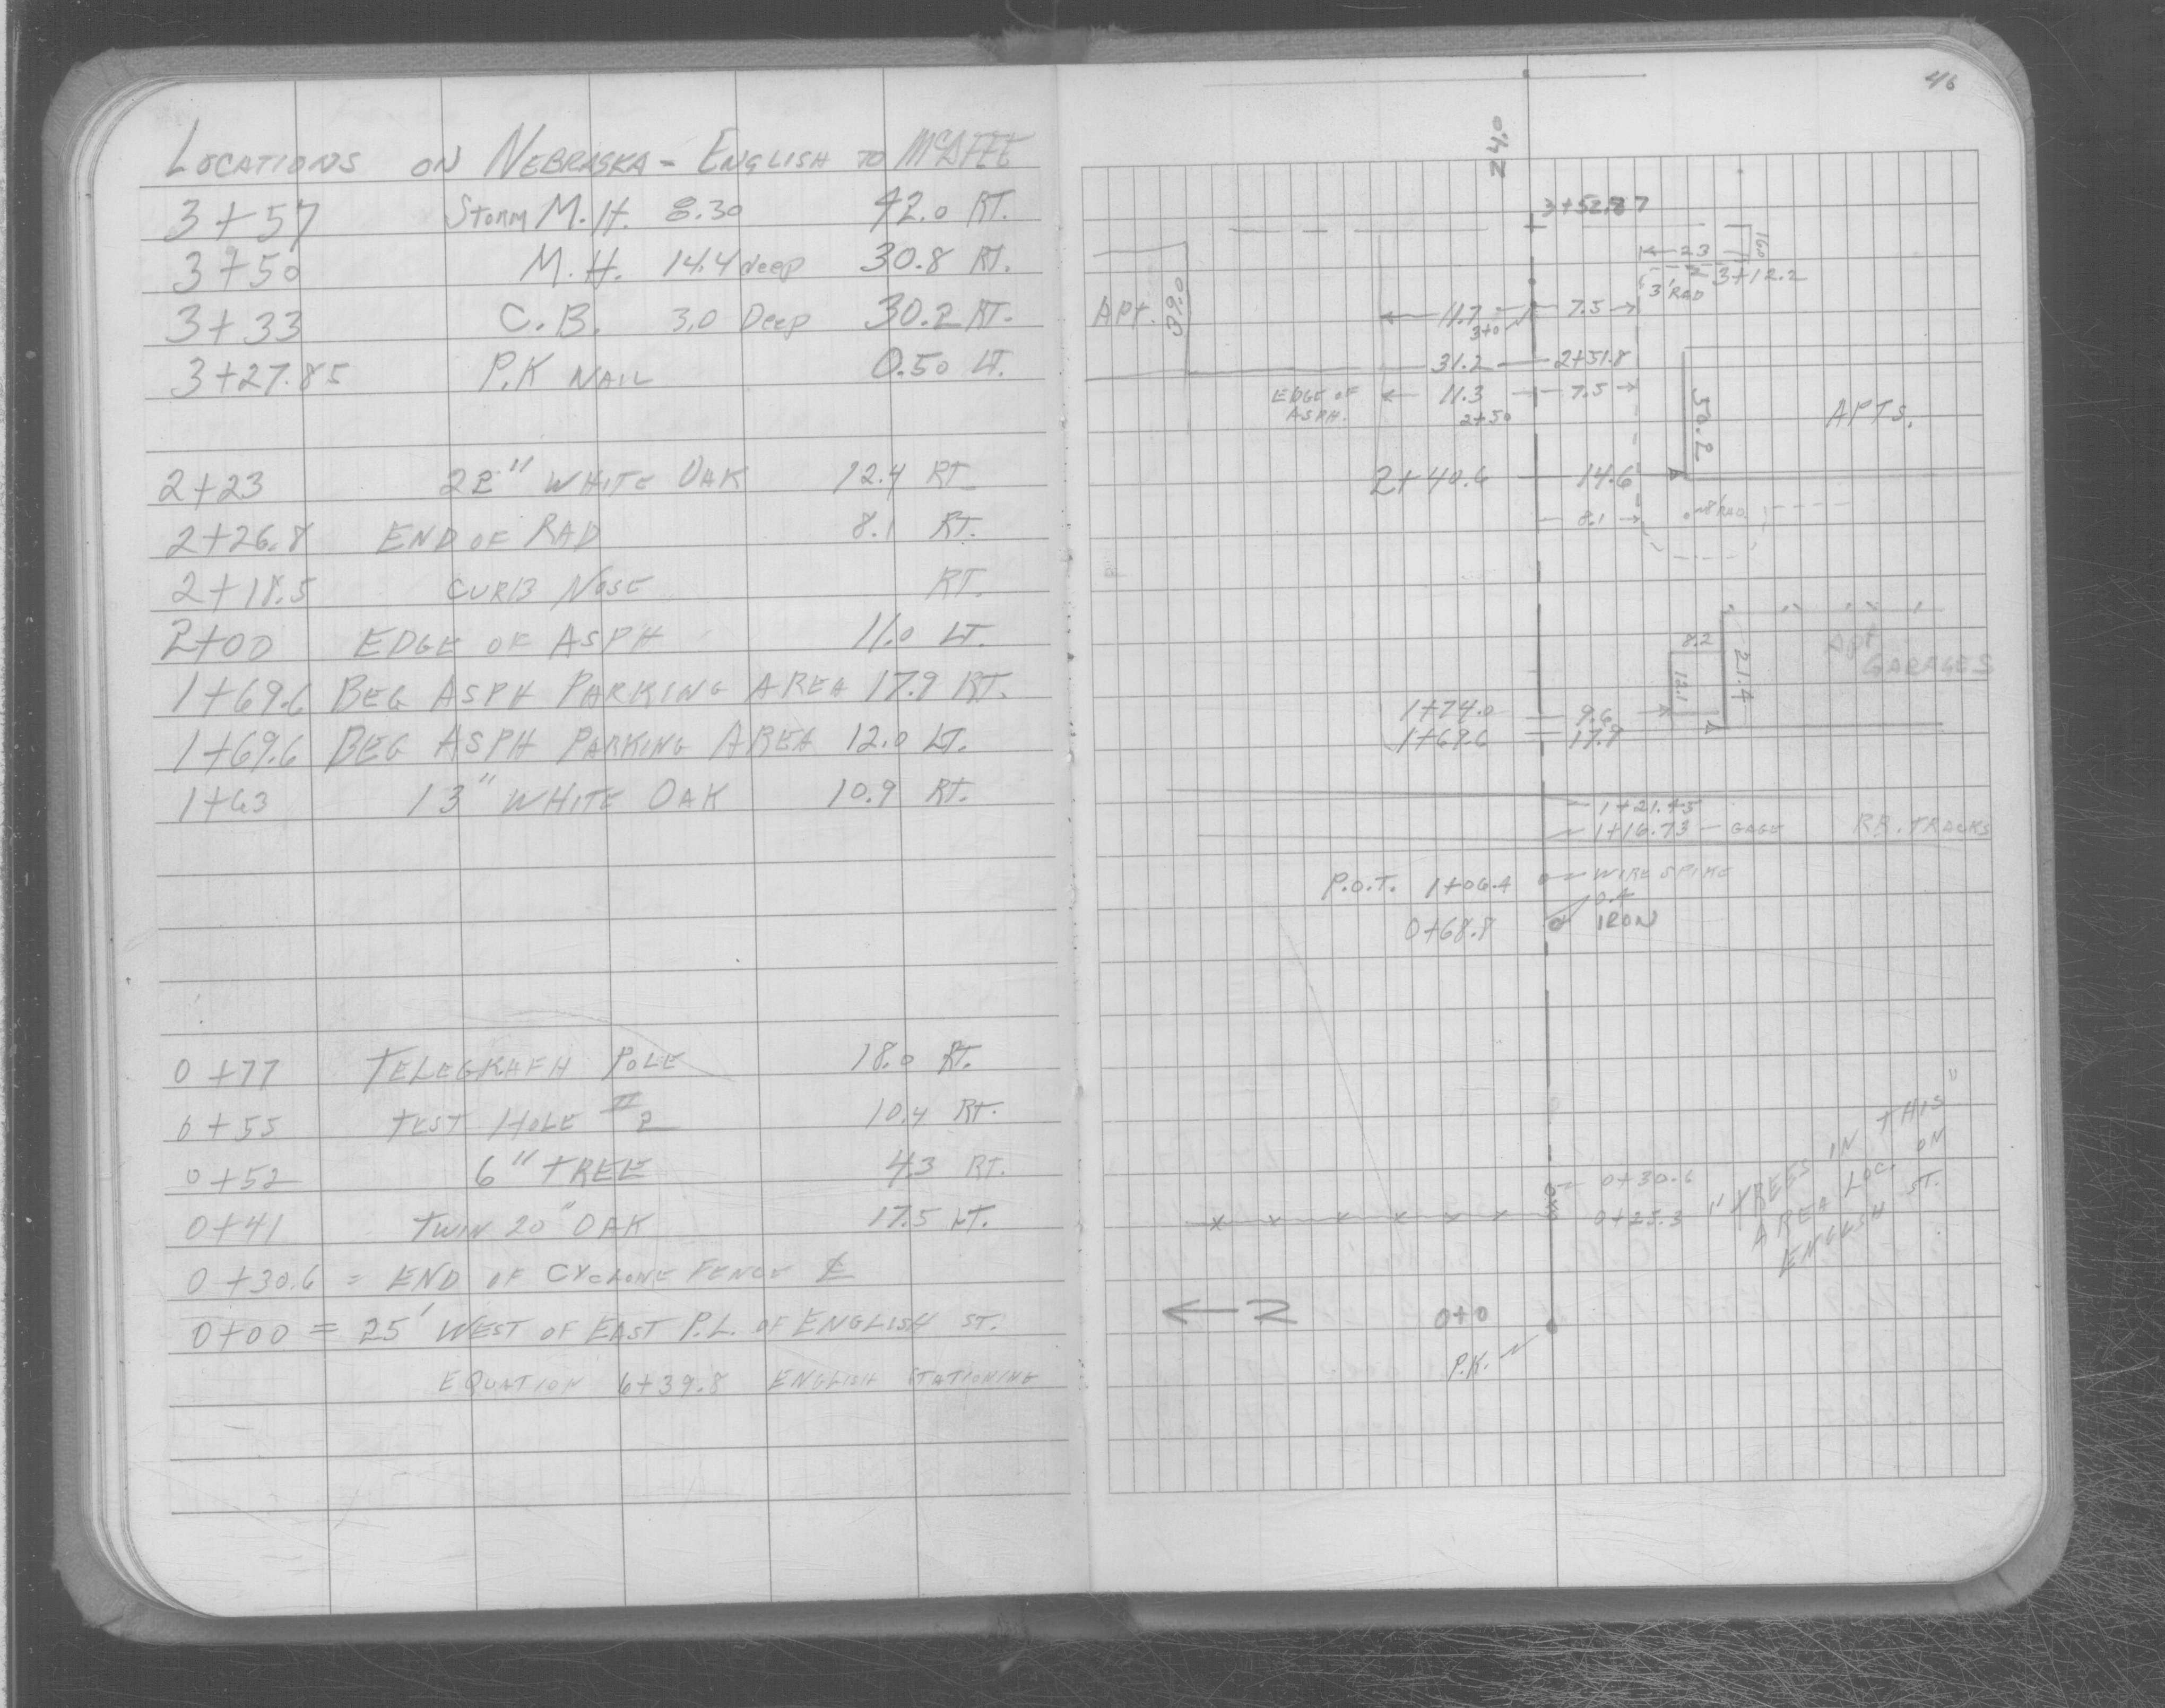 LOCATIONS ON NEBRASKA - ENGLISH TO McAFEE
3+57 STORM M.H. 8.30 42.0 RT.
3+50 M.H. 14.4 deep 30.8 RT.
3+33 C.B. 3.0 Deep 30.2 RT.
3+27.85 P.K NAIL 0.50 LT.
2+23 22" WHITE OAK 12.4 RT.
2+26.8 END OF RAD 8.1 RT.
2+18.5 CURB NOSE RT.
2+00 EDGE OF ASPH 11.0 LT.
1+69.6 BEG ASPH PARKING AREA 17.9 RT.
1+69.6 BEG ASPH PARKING AREA 12.0 LT.
1+63 13" WHITE OAK 10.9 RT.
0+77 TELEGRAPH POLE 18.0 RT.
0+55 TEST HOLE # 2 10.4 RT.
0+52 6" TREE 4.3 RT.
0+41 TWIN 20" OAK 17.5 LT.
0+30.6 = END OF CYCLONE FENCE ℄
0+00 = 25' WEST OF EAST P.L. OF ENGLISH ST.
EQUATION 6+39.8 ENGLISH STATIONING
46
24.0
3+52.87
23 16.0
3+12.2
3' RAD
APT. 39.0
11.7 7.5
3+0
31.2 2+51.8
EDGE OF ASPH. 11.3 7.5
2+50
50.2 APTS.
2+40.6 14.6
8.1 8' RAD.
8.2
13.1 21.4
Apt GARAGES
1+74.0 9.6
1+69.6 17.9
1+21.45
1+16.73 - GAGE RR. TRACKS
P.O.T. 1+06.4 WIRE SPIKE
0.4
0+68.8 IRON
0+30.6
0+25.3
"TREES IN THIS
AREA LOC. ON
ENGLISH ST."
N
0+0
P.K.